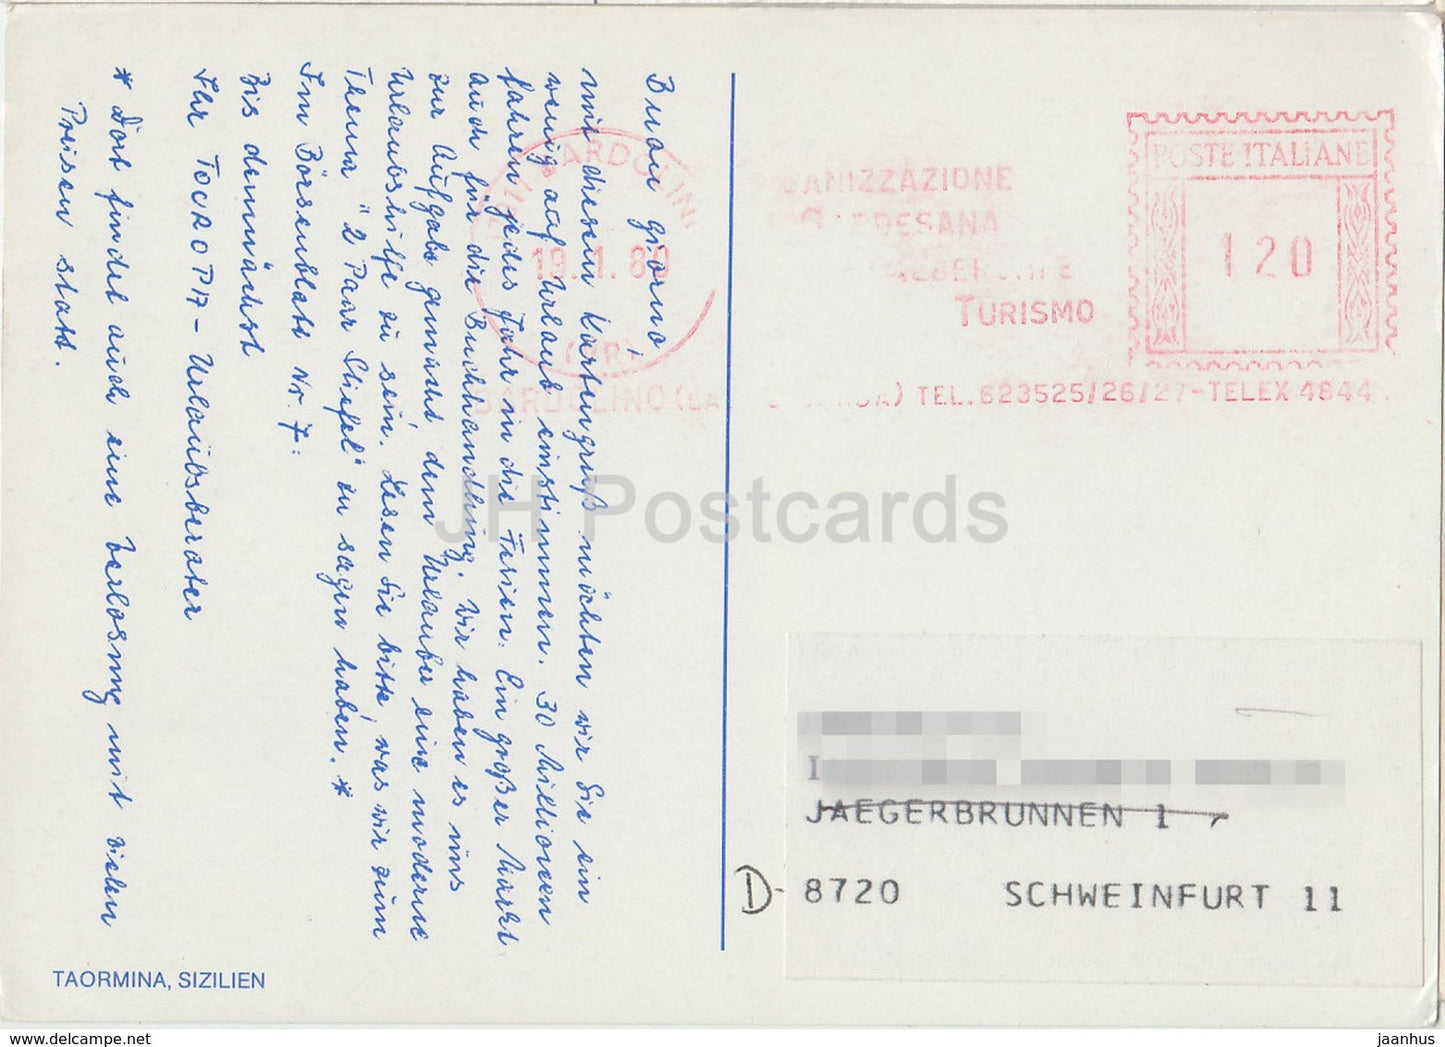 Buon giorno!
mit diesem Kartengruß möchten wir Sie ein
wenig auf Urlaub einstimmen. 30 Millionen
fahren jedes Jahr in die Ferien. Ein großer Markt
auch für die Buchhandlung. Wir haben es uns
zur Aufgabe gemacht dem Urlauber eine moderne
Urlaubshilfe zu sein. Lesen Sie bitte, was wir zum
Thema "2 Paar Stiefel" zu sagen haben. *
Im Börsenblatt Nr. 7.
Bis demnächst
Ihr TOUROPA-Urlaubsberater
* Dort findet auch eine Verlosung mit vielen
Preisen statt.
TAORMINA, SIZILIEN
BARDOLINO
19. 1. 80
(VR)
GANIZZAZIONE
GARDESANA
TURISMO
POSTE ITALIANE
120
BARDOLINO (LA
DA) TEL. 623525/26/27-TELEX 4844
JAEGERBRUNNEN 1
D- 8720 SCHWEINFURT 11
JH Postcards
www.delcampe.net
jaanhus